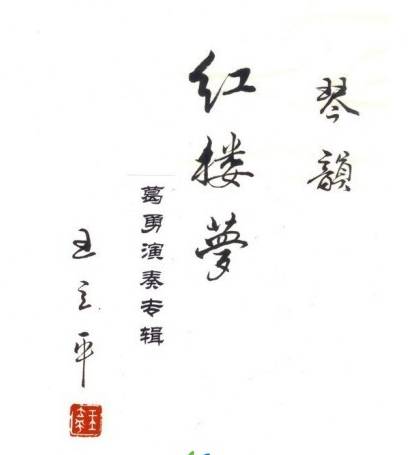 琴韻
红楼夢
葛勇演奏专辑
王立平